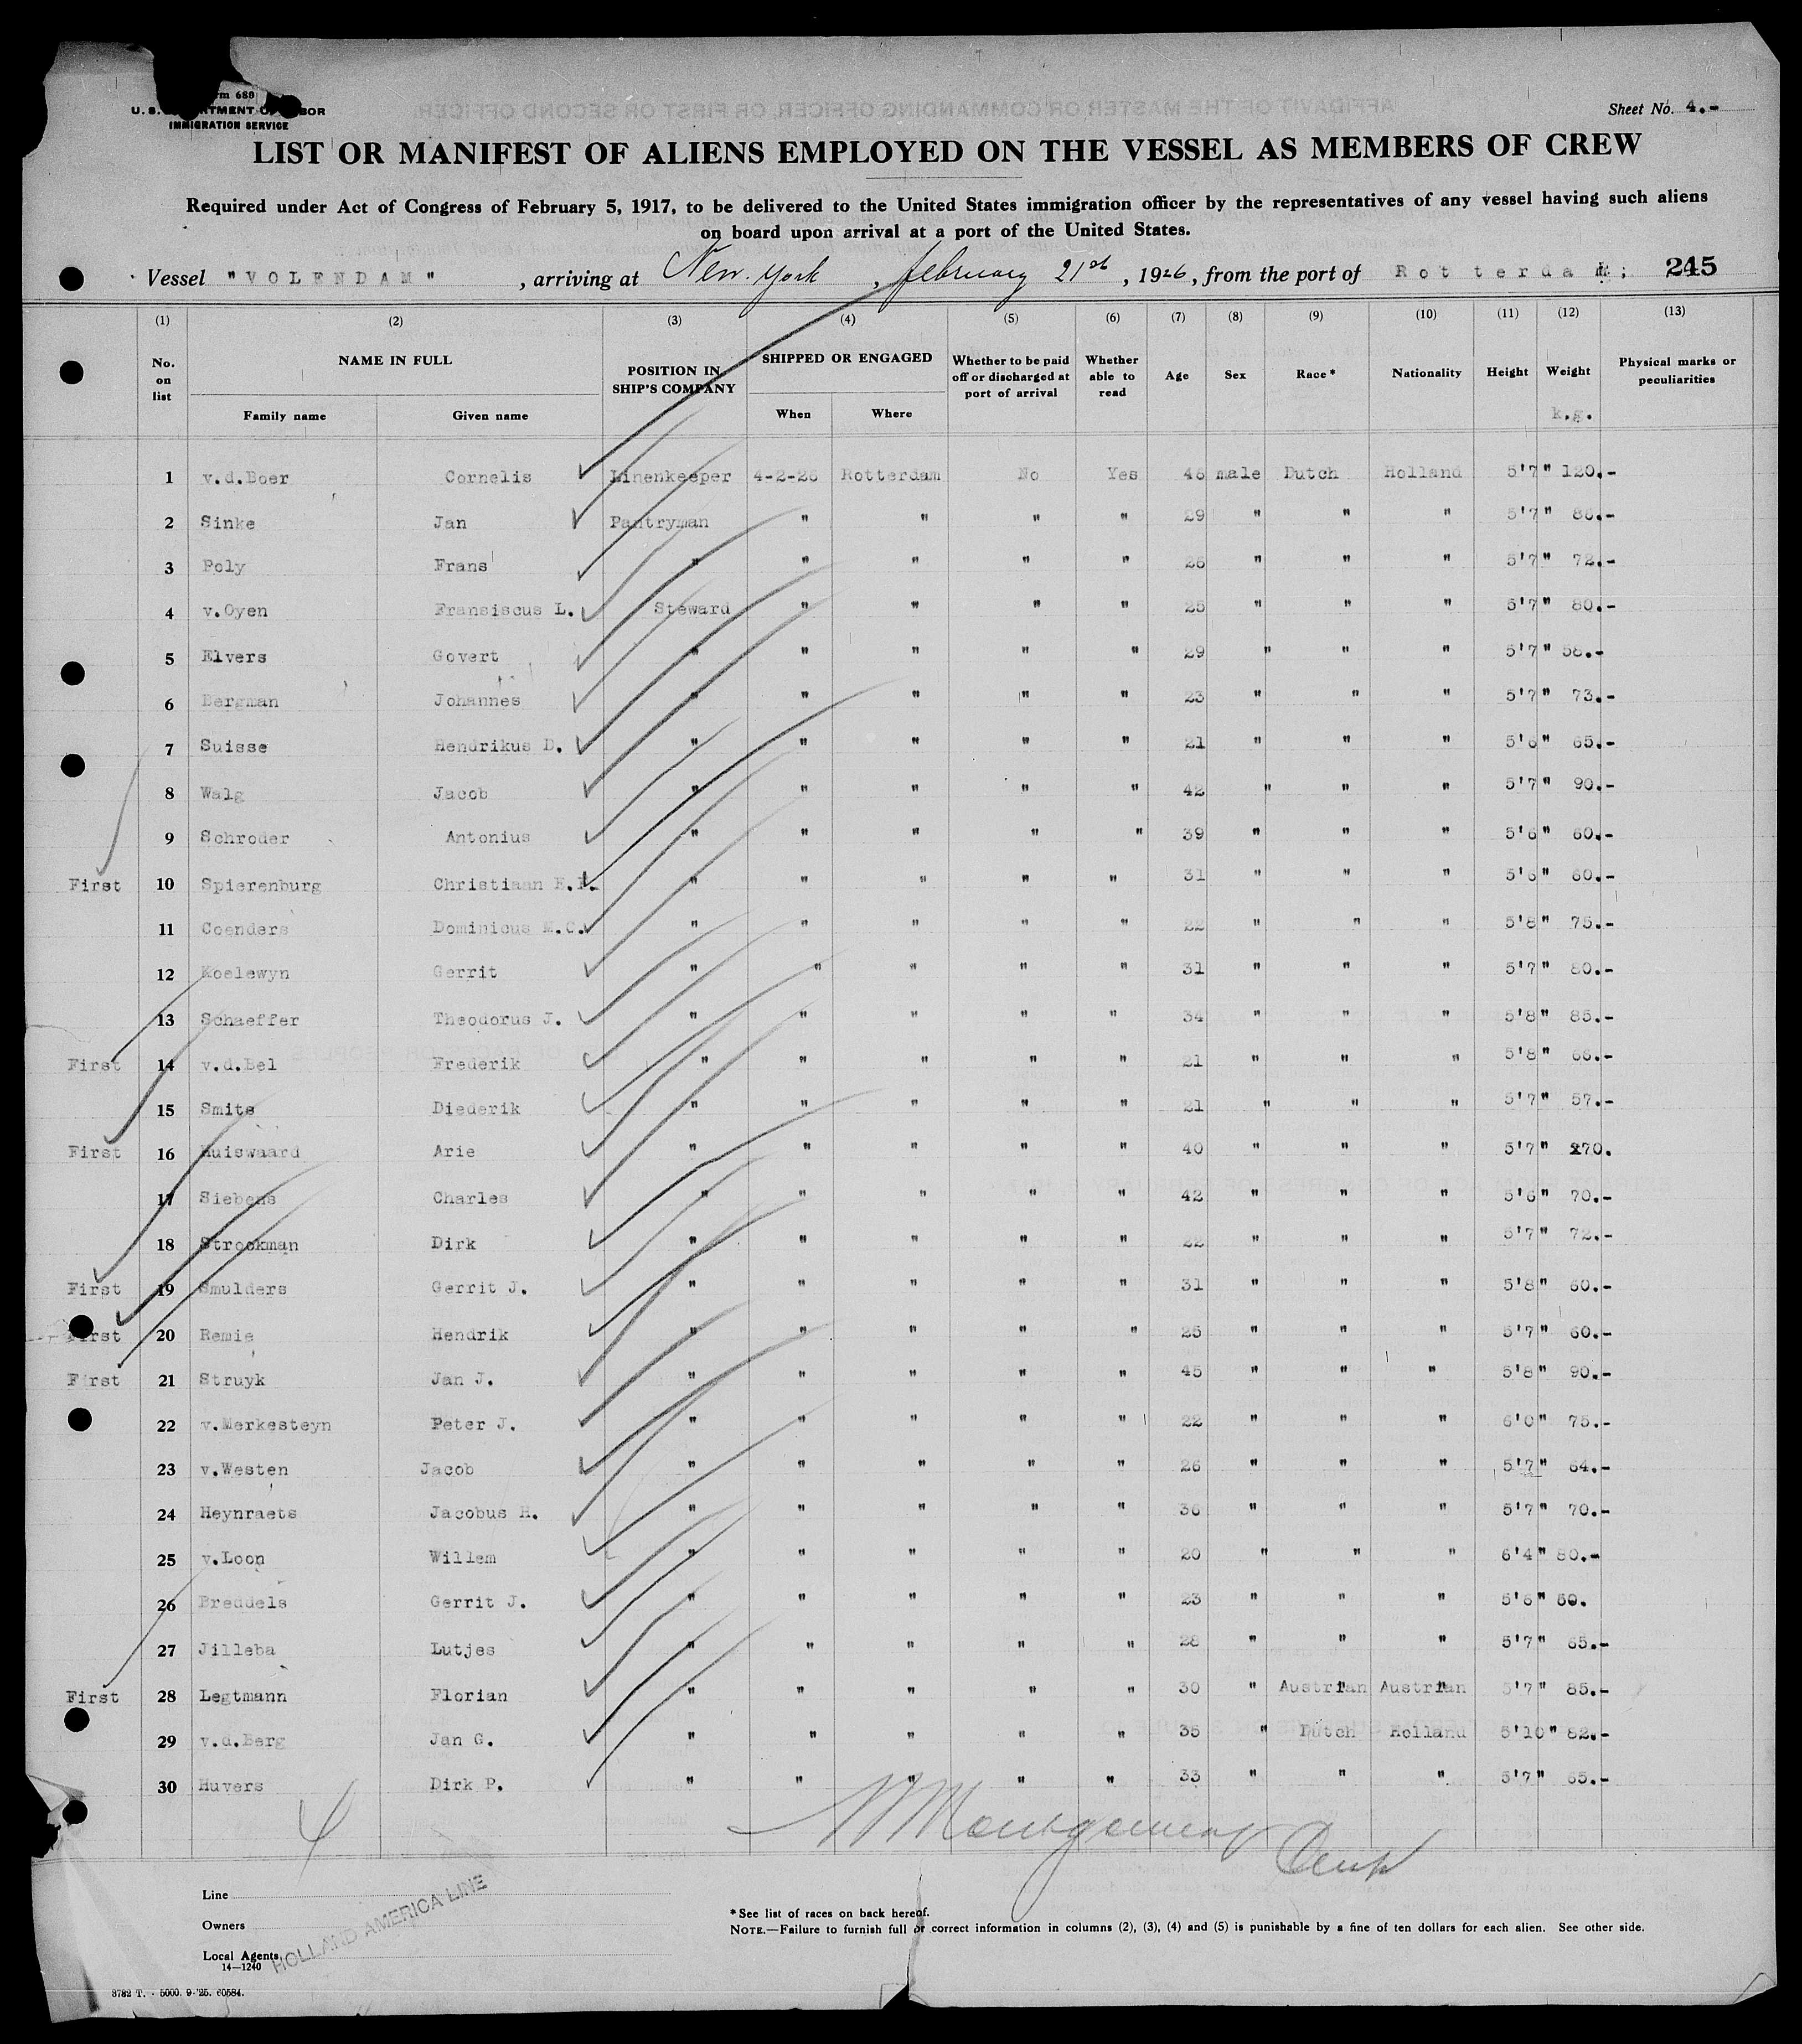 rm 680
U. S. RTMENT O BOR
IMMIGRATION SERVICE
Sheet No. 4.-
LIST OR MANIFEST OF ALIENS EMPLOYED ON THE VESSEL AS MEMBERS OF CREW
Required under Act of Congress of February 5, 1917, to be delivered to the United States immigration officer by the representatives of any vessel having such aliens
on board upon arrival at a port of the United States.
Vessel "VOLENDAM", arriving at New. York, february 21st, 1926, from the port of Rotterdam; 245
(1) (2) (3) (4) (5) (6) (7) (8) (9) (10) (11) (12) (13)
No. on list NAME IN FULL Family name Given name POSITION IN SHIP'S COMPANY SHIPPED OR ENGAGED When Where Whether to be paid off or discharged at port of arrival Whether able to read Age Sex Race* Nationality Height Weight k.g. Physical marks or peculiarities
1 v.d.Boer Cornelis Linenkeeper 4-2-26 Rotterdam No Yes 46 male Dutch Holland 5'7" 120.-
2 Sinke Jan Pantryman " " " " 29 " " " 5'7" 86.-
3 Poly Frans " " " " " 26 " " " 5'7" 72.-
4 v.Oyen Fransiscus L. Steward " " " " 25 " " " 5'7" 80.-
5 Elvers Govert " " " " " 29 " " " 5'7" 58.-
6 Bergman Johannes " " " " " 23 " " " 5'7" 73.-
7 Suisse Hendrikus D. " " " " " 21 " " " 5'6" 65.-
8 Walg Jacob " " " " " 42 " " " 5'7" 90.-
9 Schroder Antonius " " " " " 39 " " " 5'6" 60.-
First 10 Spierenburg Christiaan " " " " " 31 " " " 5'6" 60.-
11 Coenders Dominicus M.C. " " " " " 22 " " " 5'8" 75.-
12 Koelewyn Gerrit " " " " " 31 " " " 5'7" 80.-
13 Schaeffer Theodorus J. " " " " " 34 " " " 5'8" 85.-
First 14 v.d.Bel Frederik " " " " " 21 " " " 5'8" 66.-
15 Smits Diederik " " " " " 21 " " " 5'7" 57.-
First 16 Huiswaard Arie " " " " " 40 " " " 5'7" 70.
17 Siebens Charles " " " " " 42 " " " 5'6" 70.-
18 Strookman Dirk " " " " " 22 " " " 5'7" 72.-
First 19 Smulders Gerrit J. " " " " " 31 " " " 5'8" 60.-
First 20 Remie Hendrik " " " " " 25 " " " 5'7" 60.-
First 21 Struyk Jan J. " " " " " 45 " " " 5'8" 90.-
22 v.Merkesteyn Peter J. " " " " " 22 " " " 6'0" 75.-
23 v.Westen Jacob " " " " " 26 " " " 5'7" 64.-
24 Heynraets Jacobus H. " " " " " 36 " " " 5'7" 70.-
25 v.Loon Willem " " " " " 20 " " " 6'4" 80.-
26 Breddels Gerrit J. " " " " " 23 " " " 5'6" 60.
27 Jilleba Lutjes " " " " " 28 " " " 5'7" 65.-
First 28 Legtmann Florian " " " " " 30 " Austrian Austrian 5'7" 85.-
29 v.d.Berg Jan G. " " " " " 35 " Dutch Holland 5'10" 82.-
30 Huvers Dirk P. " " " " " 33 " " " 5'7" 65.-
4
Montgomery
Line
Owners
Local Agents
HOLLAND AMERICA LINE
14—1240
* See list of races on back hereof.
NOTE.—Failure to furnish full or correct information in columns (2), (3), (4) and (5) is punishable by a fine of ten dollars for each alien. See other side.
3782 T. - 5000. 9-'25. 60584.